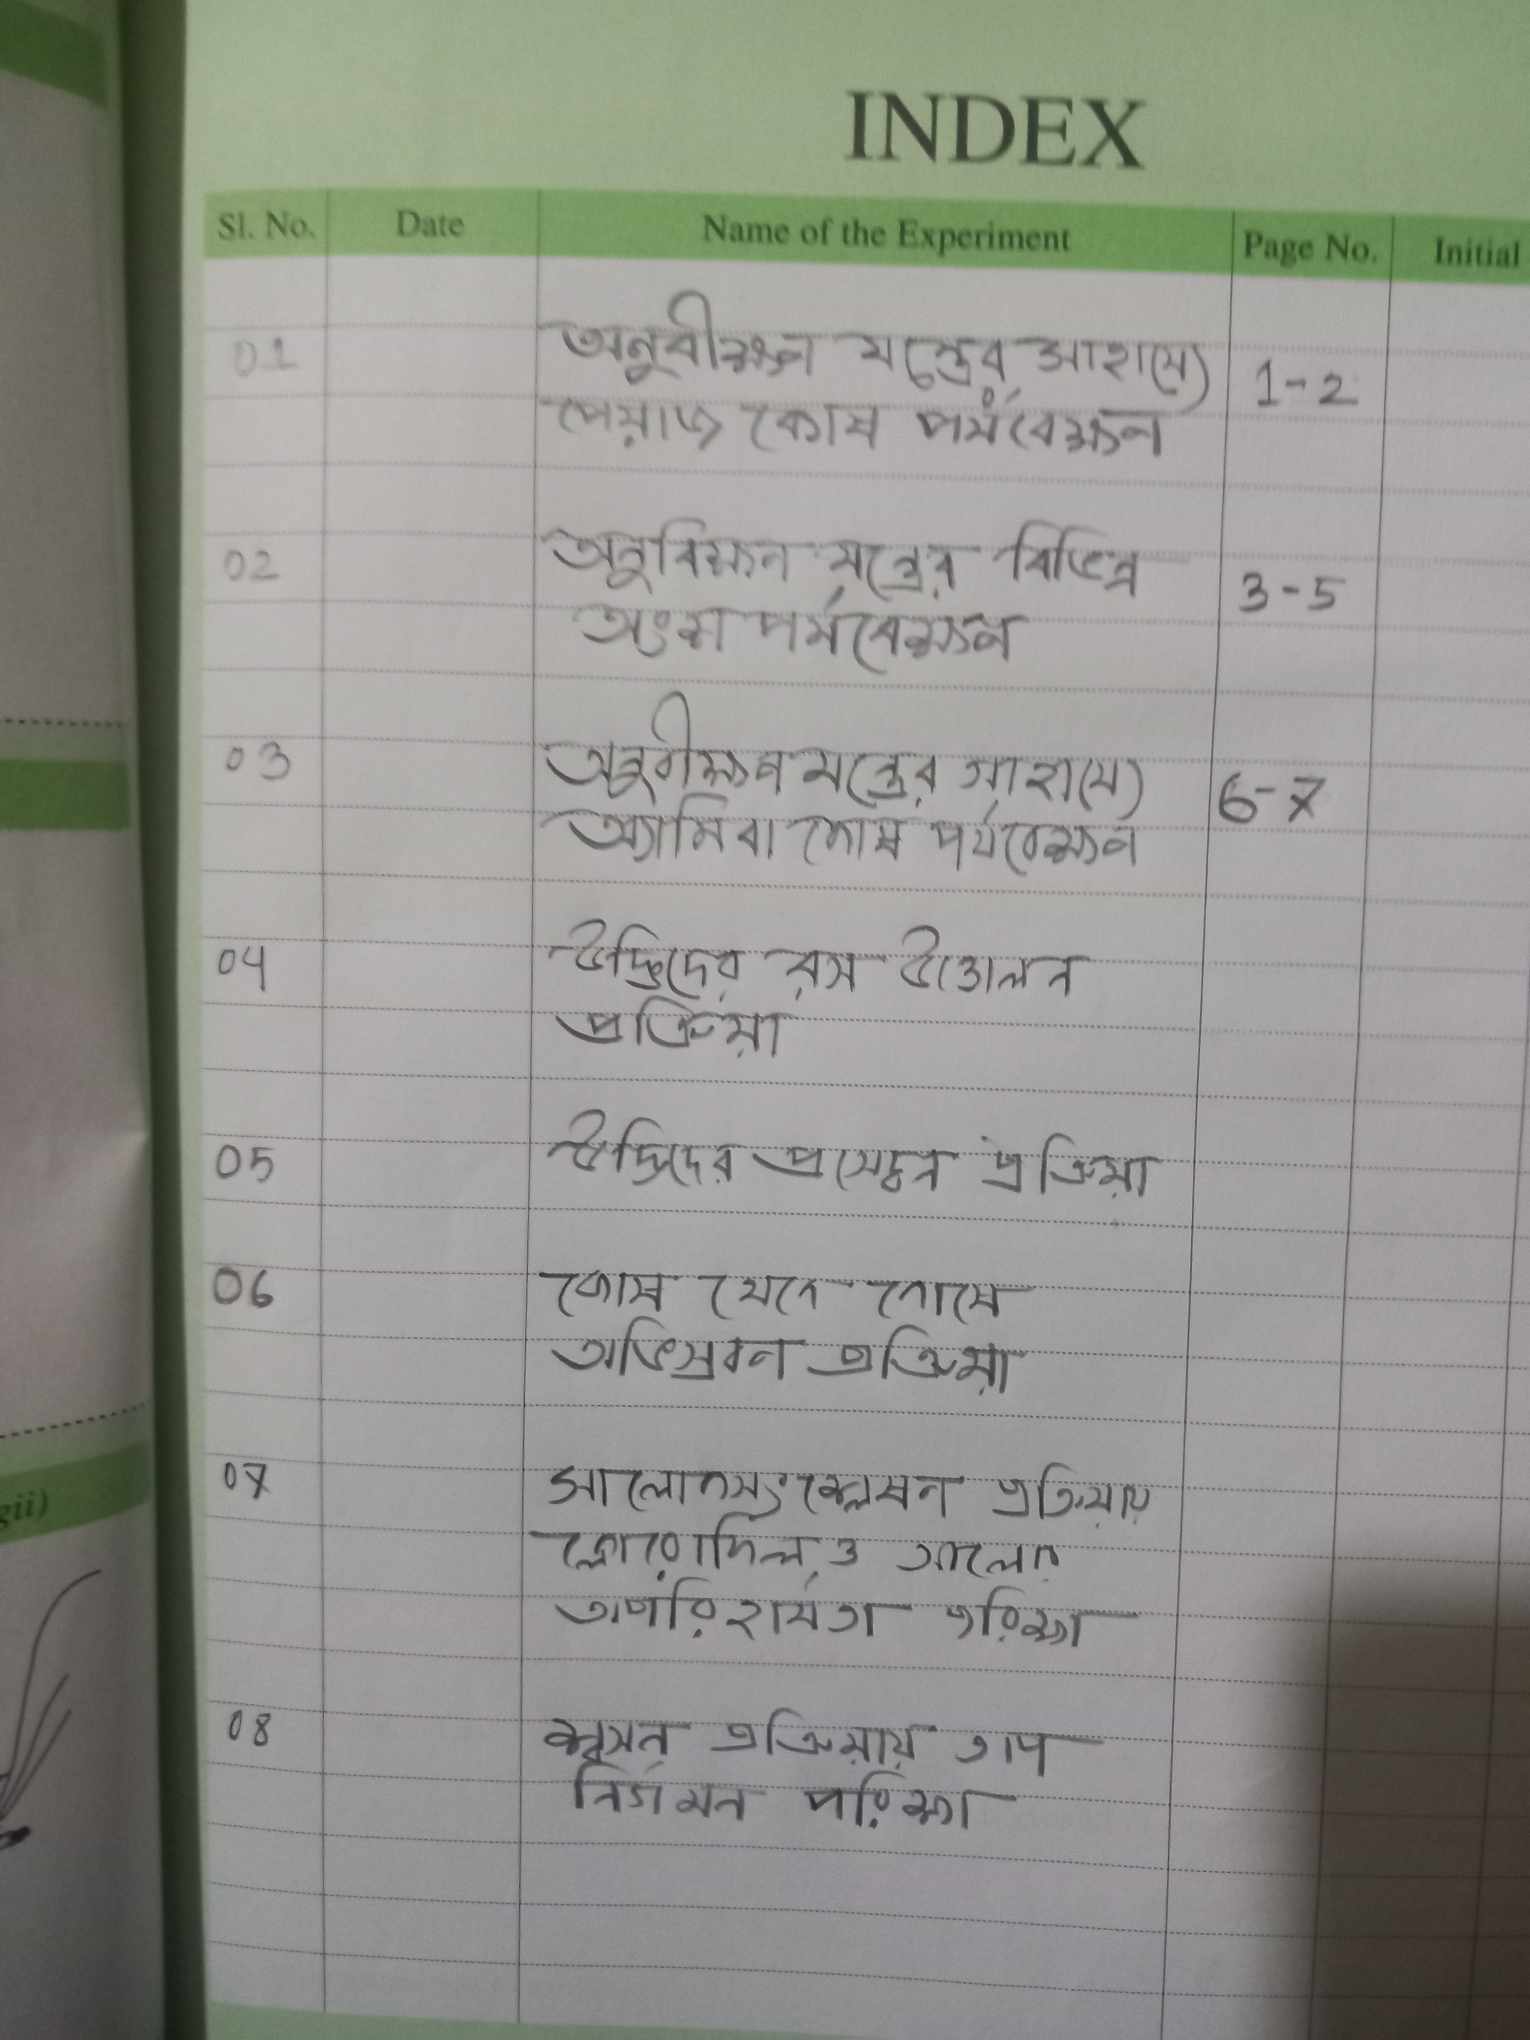 INDEX
Sl. No. Date Name of the Experiment Page No. Initial
01 অনুবীক্ষন যন্ত্রের সাহায্যে 1-2
পেয়াজ কোষ পর্যবেক্ষন
02 অনুবিক্ষন যন্ত্রের বিভিন্ন 3-5
অংশ পর্যবেক্ষন
03 অনুবীক্ষন যন্ত্রের সাহায্যে 6-7
অ্যামিবা কোষ পর্যবেক্ষন
04 উদ্ভিদের রস উত্তোলন
প্রক্রিয়া
05 উদ্ভিদের প্রস্বেদন প্রক্রিয়া
06 কোষ থেকে কোষে
অভিস্রবন প্রক্রিয়া
07 সালোকসংশ্লেষন প্রক্রিয়ায়
ক্লোরোফিল ও আলোর
অপরিহার্যতা পরিক্ষা
08 শ্বসন প্রক্রিয়ায় তাপ
নির্গমন পরিক্ষা
gii)